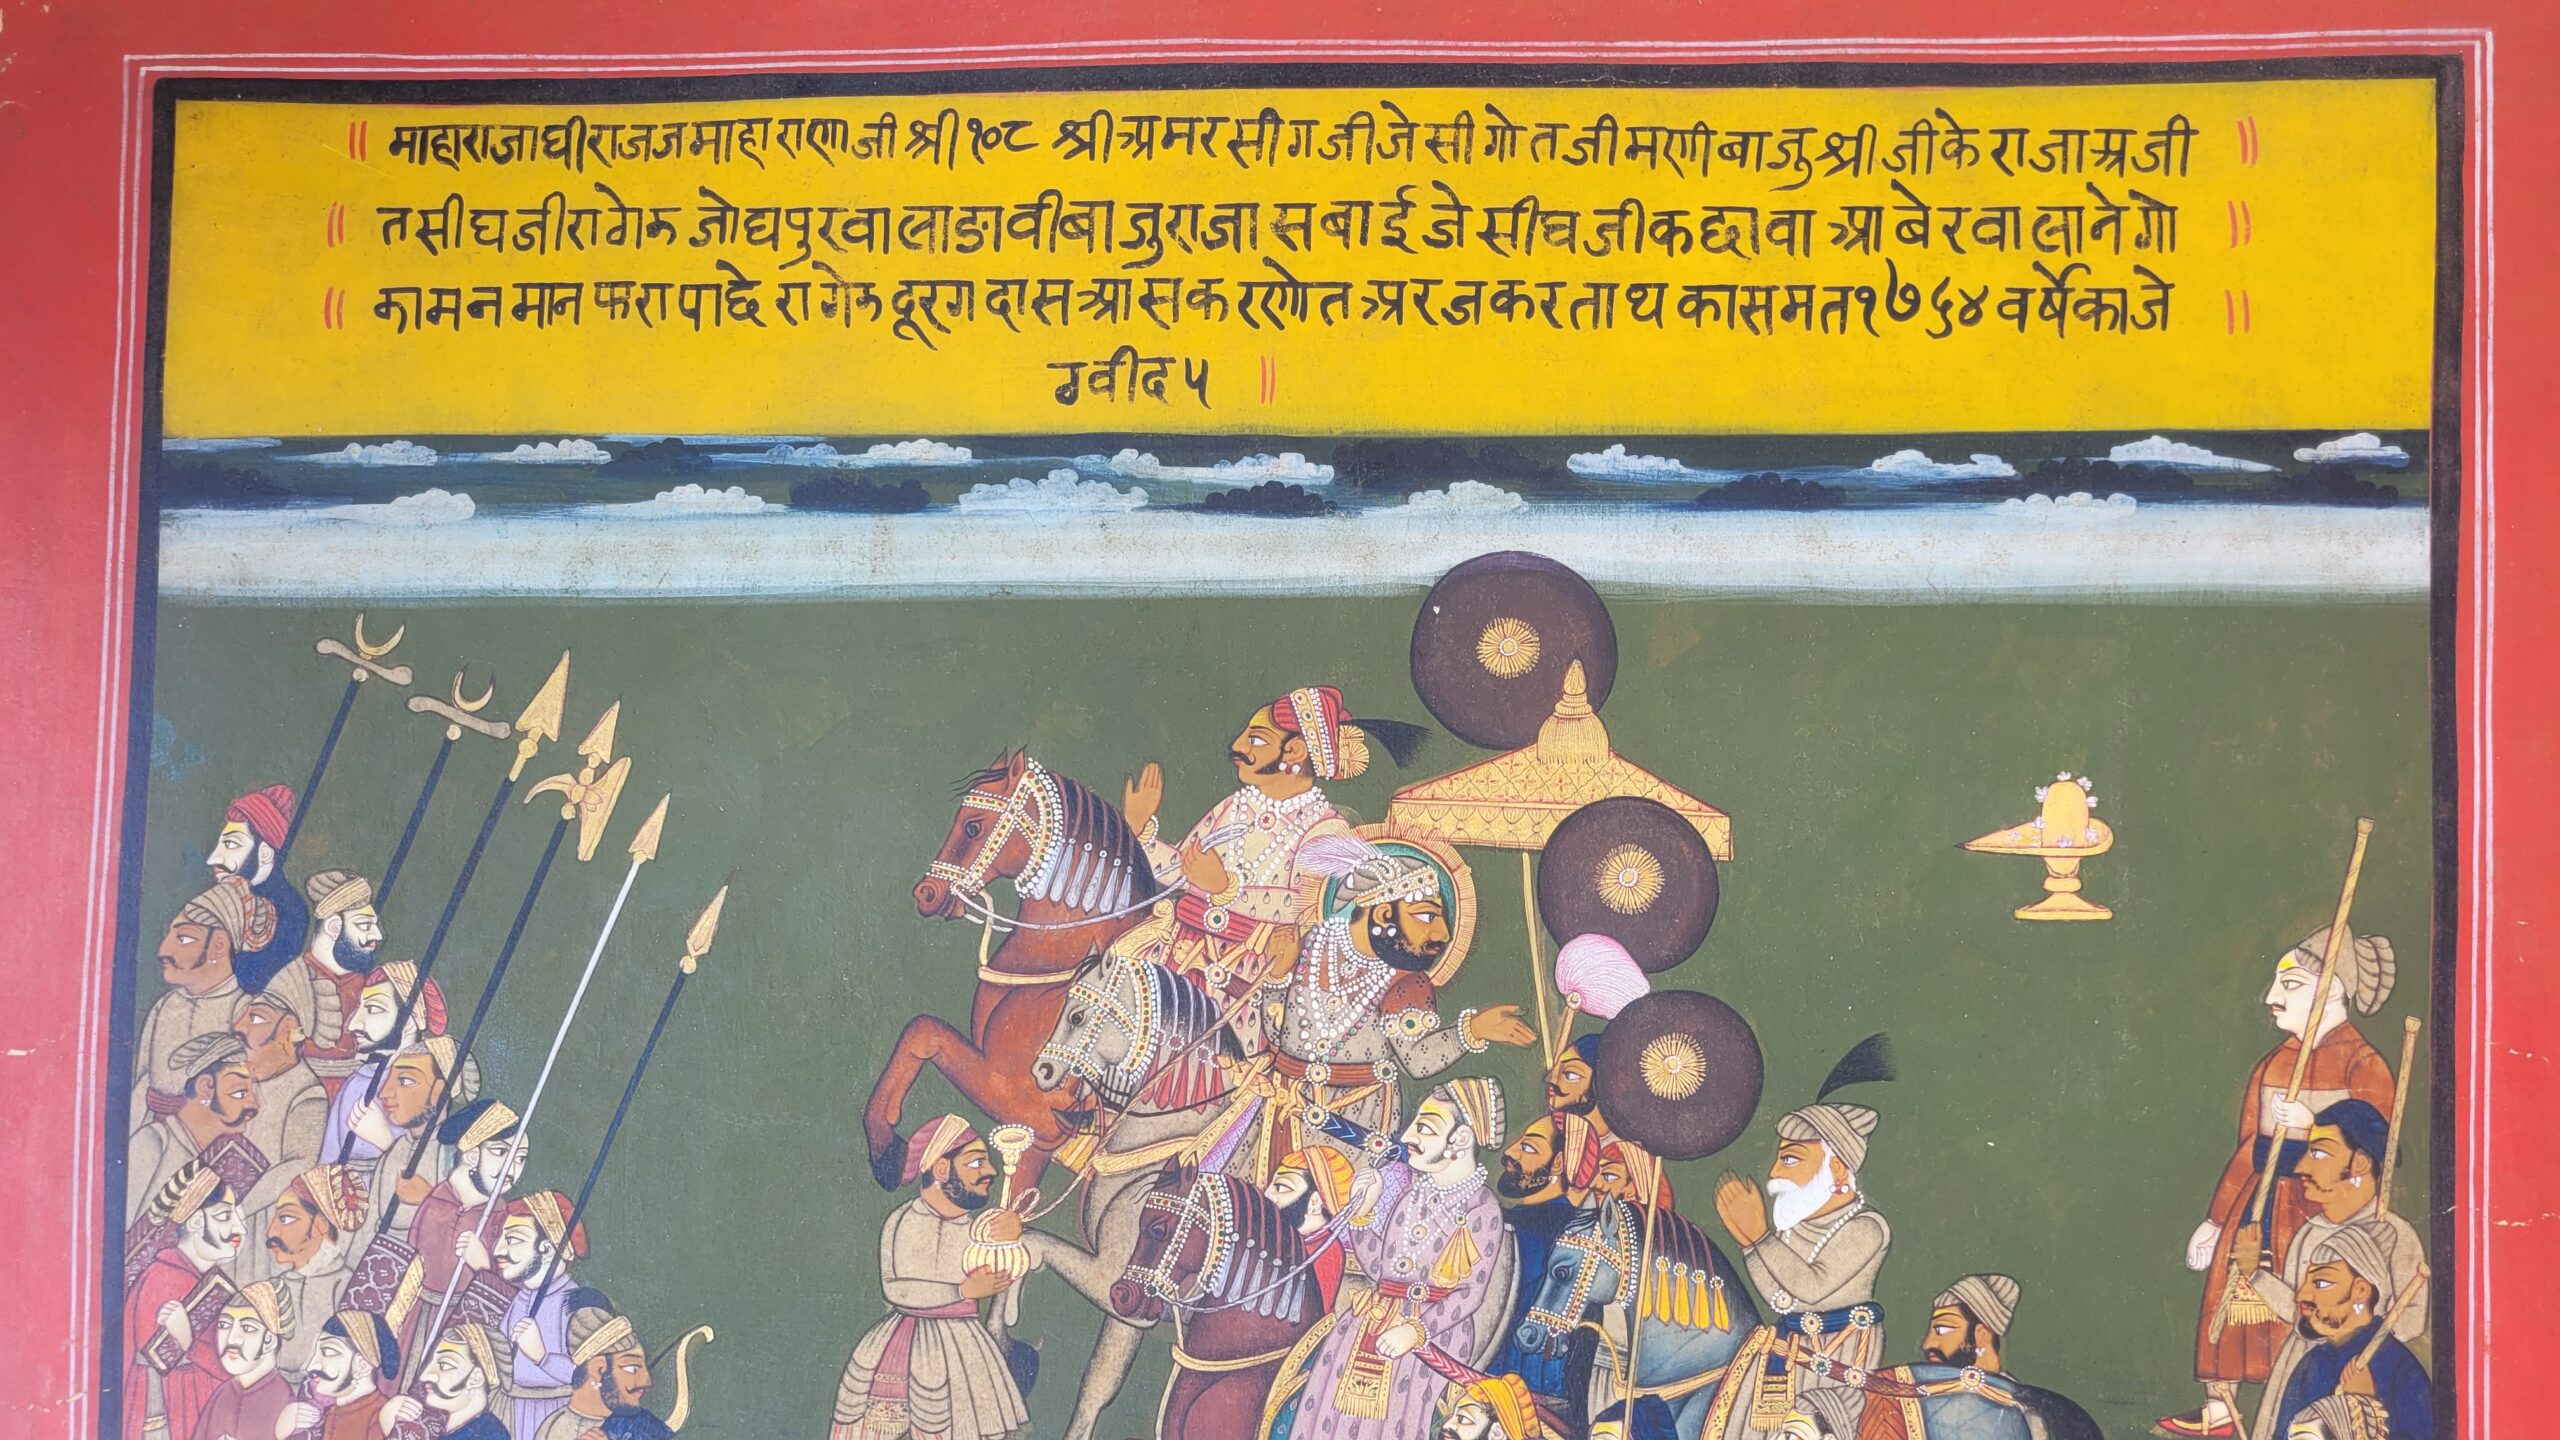 ॥ माहाराजाधीराजजमाहाराणाजीश्री१०८ श्रीअमरसीगजीजेसीगोतजीमणीबाजुश्रीजीकेराजाअजी ॥
॥ तसीघजीरागेरुजोद्यपुरवालाडावीबाजुराजासबाईजेसीघजीकछावाआबेरवालानेगो ॥
॥ कामनमानफरापाछेरागेरुदूरगदासआसकरणोतअरजकरताथकासमत१७५४वर्षेकाजे ॥
ठवीद५ ॥